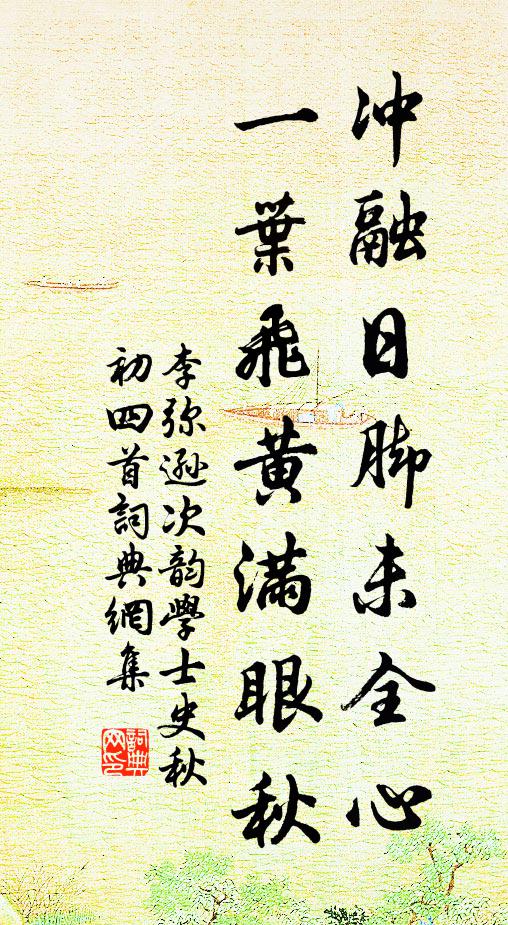 冲融日脚未全心
一葉飛黄满眼秋
李弥遜次韵學士史秋
初四首詞典網集
詞典網印